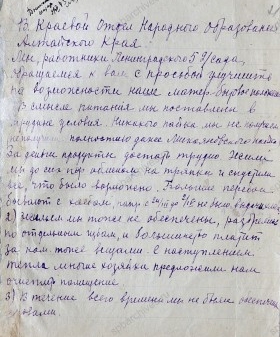 В. Краевой Отдел Народного Образования
Алтайского Края
Мы, работники Ленинградского 59 г/сада,
обращаемся к вам с просьбой улучшить
по возможности наше матер. бытовое
В смысле питания мы поставлены в
условия. Никакого пайка мы не
получаем полностью даже
За деньги продукты достать трудно. Жили
мы до сих пор обменом на тряпки и спустили
все, что было возможно. Большие перебои
бывают с хлебом, напр. с не было выдачи
2) жильем мы тоже не обеспечены, разбросаны
по отдельным углам, и большинство платит
за них тоже вещами. С наступлением
тепла многие хозяйки предложили нам
очистить помещение
3) В течение всего времени мы не были обеспечены
дровами